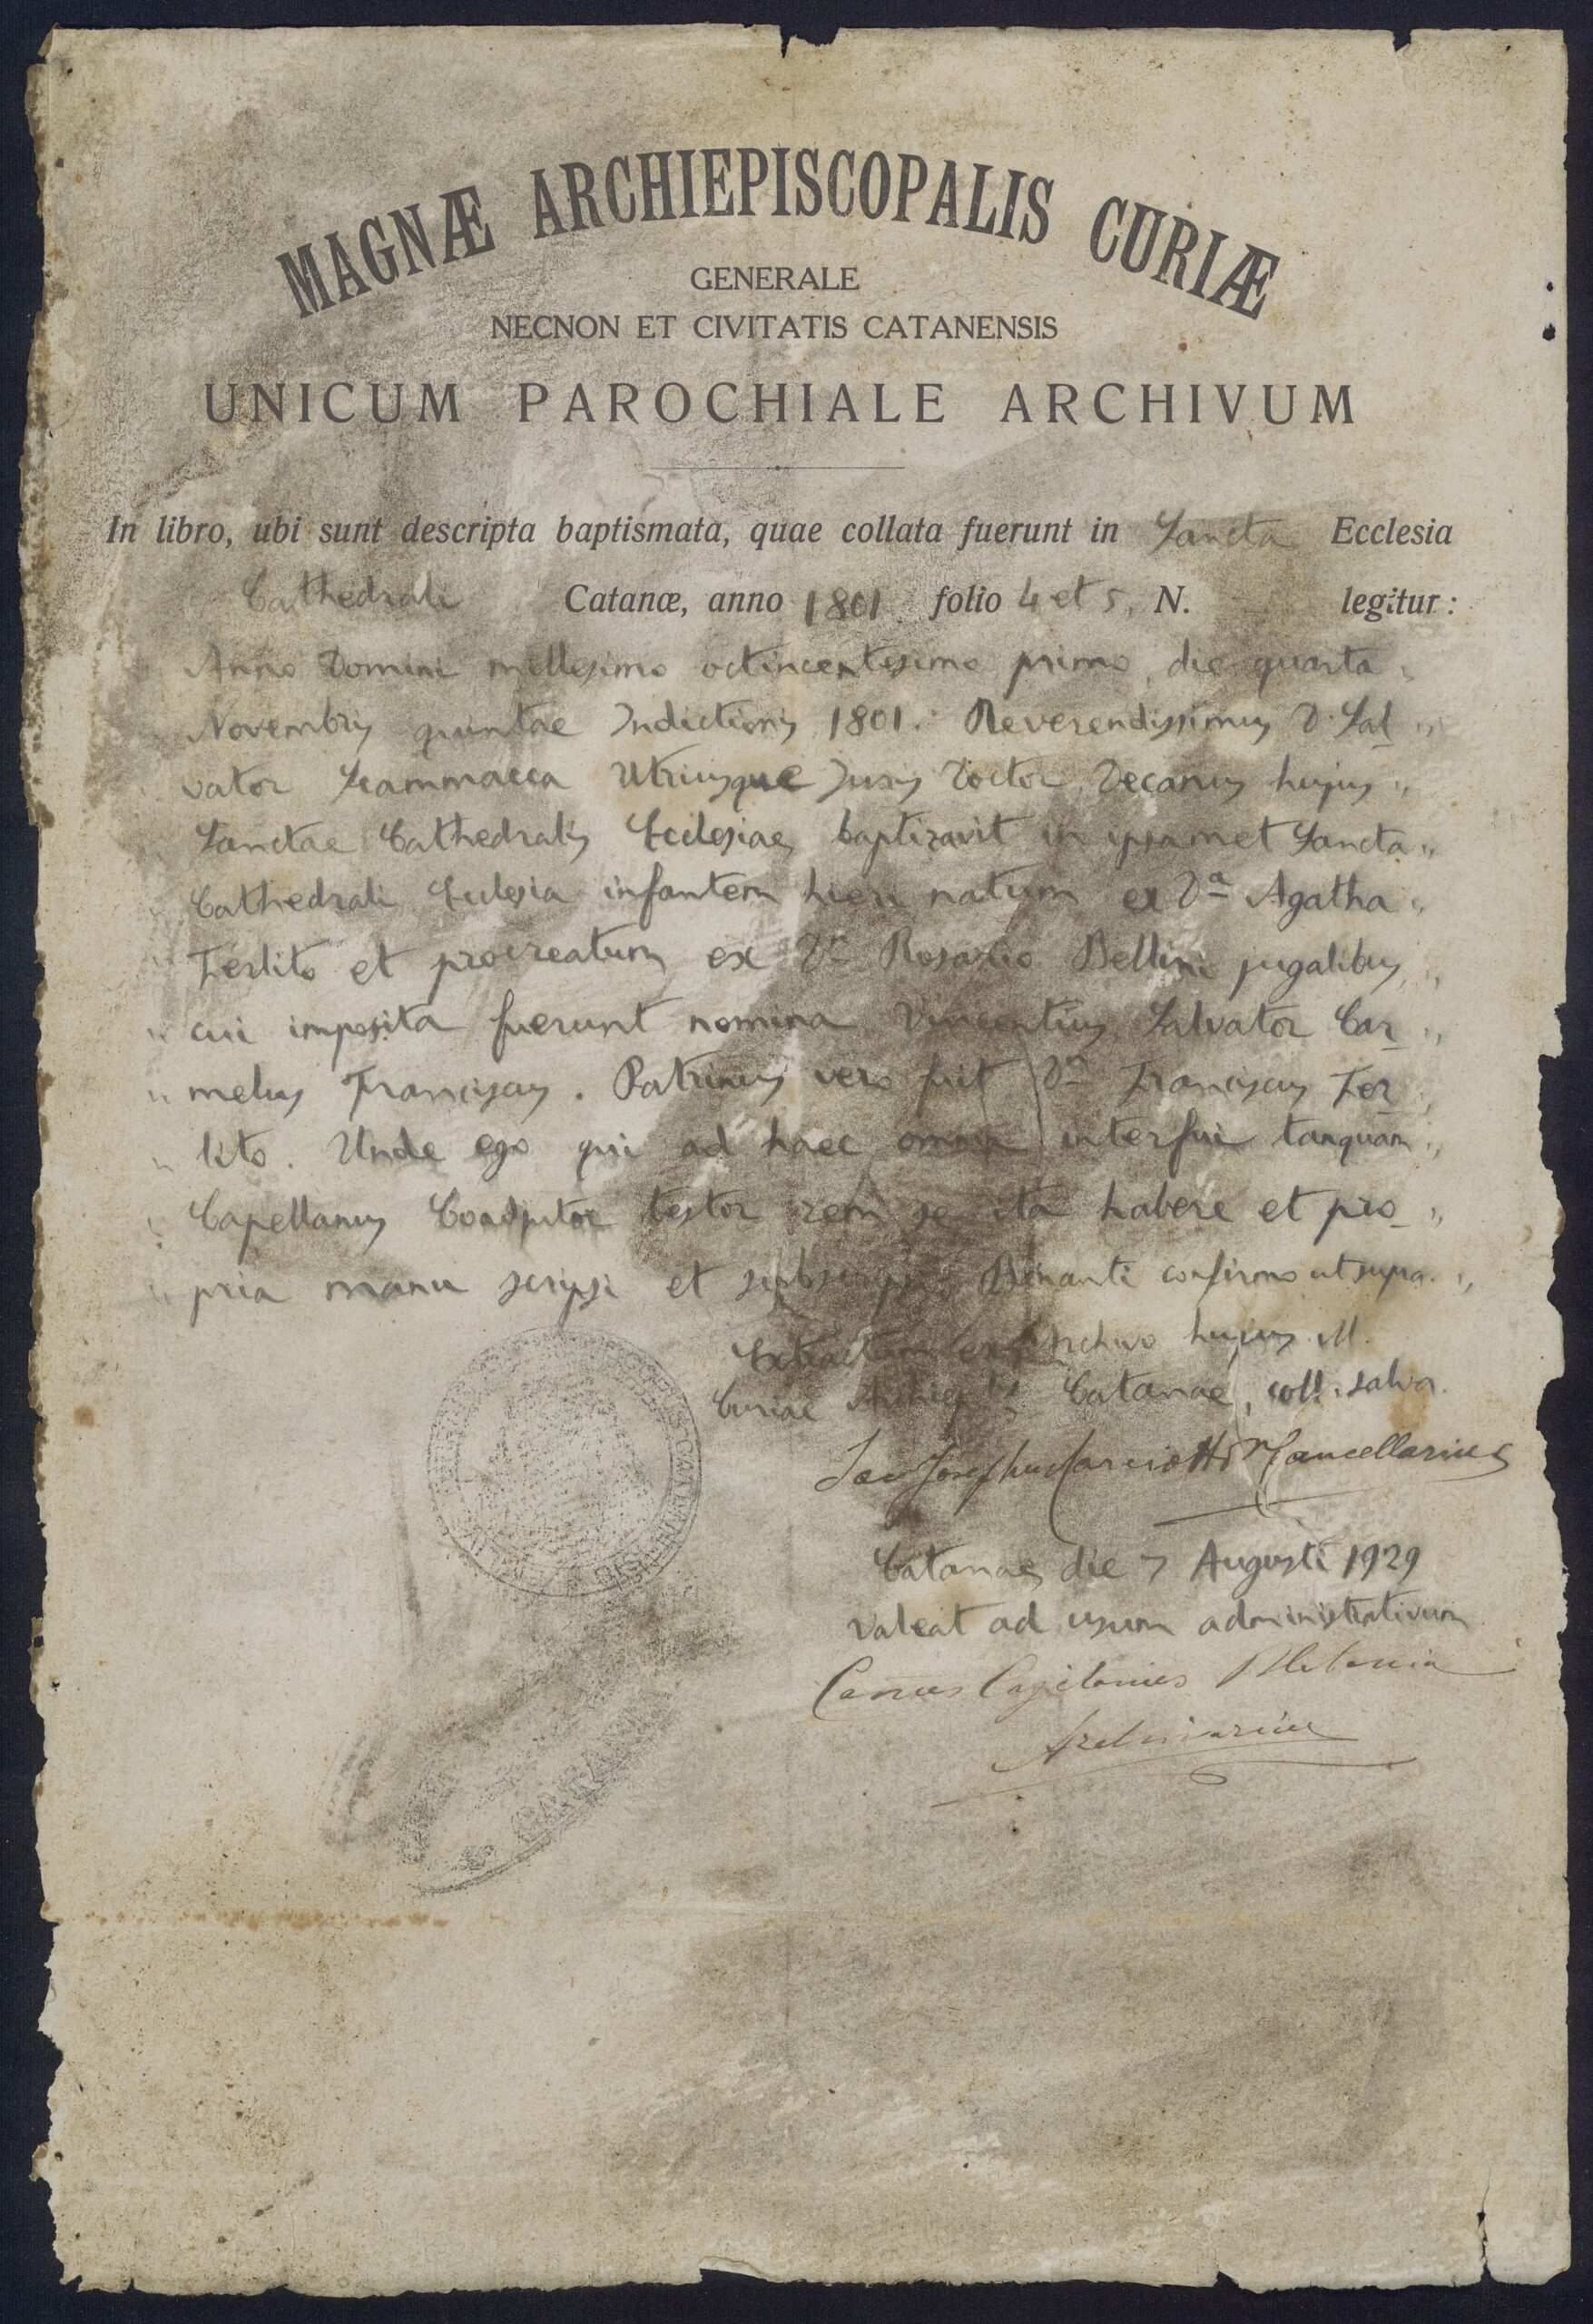 MAGNÆ ARCHIEPISCOPALIS CURIÆ
GENERALE
NECNON ET CIVITATIS CATANENSIS
UNICUM PAROCHIALE ARCHIVUM
In libro, ubi sunt descripta baptismata, quae collata fuerunt in Sancta Ecclesia
Cathedrali Catanæ, anno 1801 folio 4 et 5, N. legitur :
Anno Domini millesimo octincentesimo primo, die quarta "
Novembris quintae Indictionis 1801. Reverendissimus D. Sal "
vator Scammacca Utriusque Juris Doctor, Decanus hujus "
Sanctae Cathedralis Ecclesiae, baptizavit in ipsamet Sancta "
Cathedrali Ecclesia infantem hieri natum ex Dª Agatha "
Ferlito et procreatum ex Dⁿ Rosario Bellini jugalibus, "
" cui imposita fuerunt nomina Vincentius Salvator Car- "
" melus Franciscus. Patrinus vero fuit Dⁿ Franciscus Fer- "
" lito. Unde ego qui ad haec omnia interfui tanquam "
" Capellanus Coadjutor testor rem se ita habere et pro- "
" pria manu scripsi et subscripsi Binanti confirmo ut supra. "
Extractum ex Archivo hujus M.
Curiae Catanae, coll. salva.
Sac Josephus Cancellarius
Catanae, die 7 Augusti 1929
Valeat ad usum administrativum
Archivarius